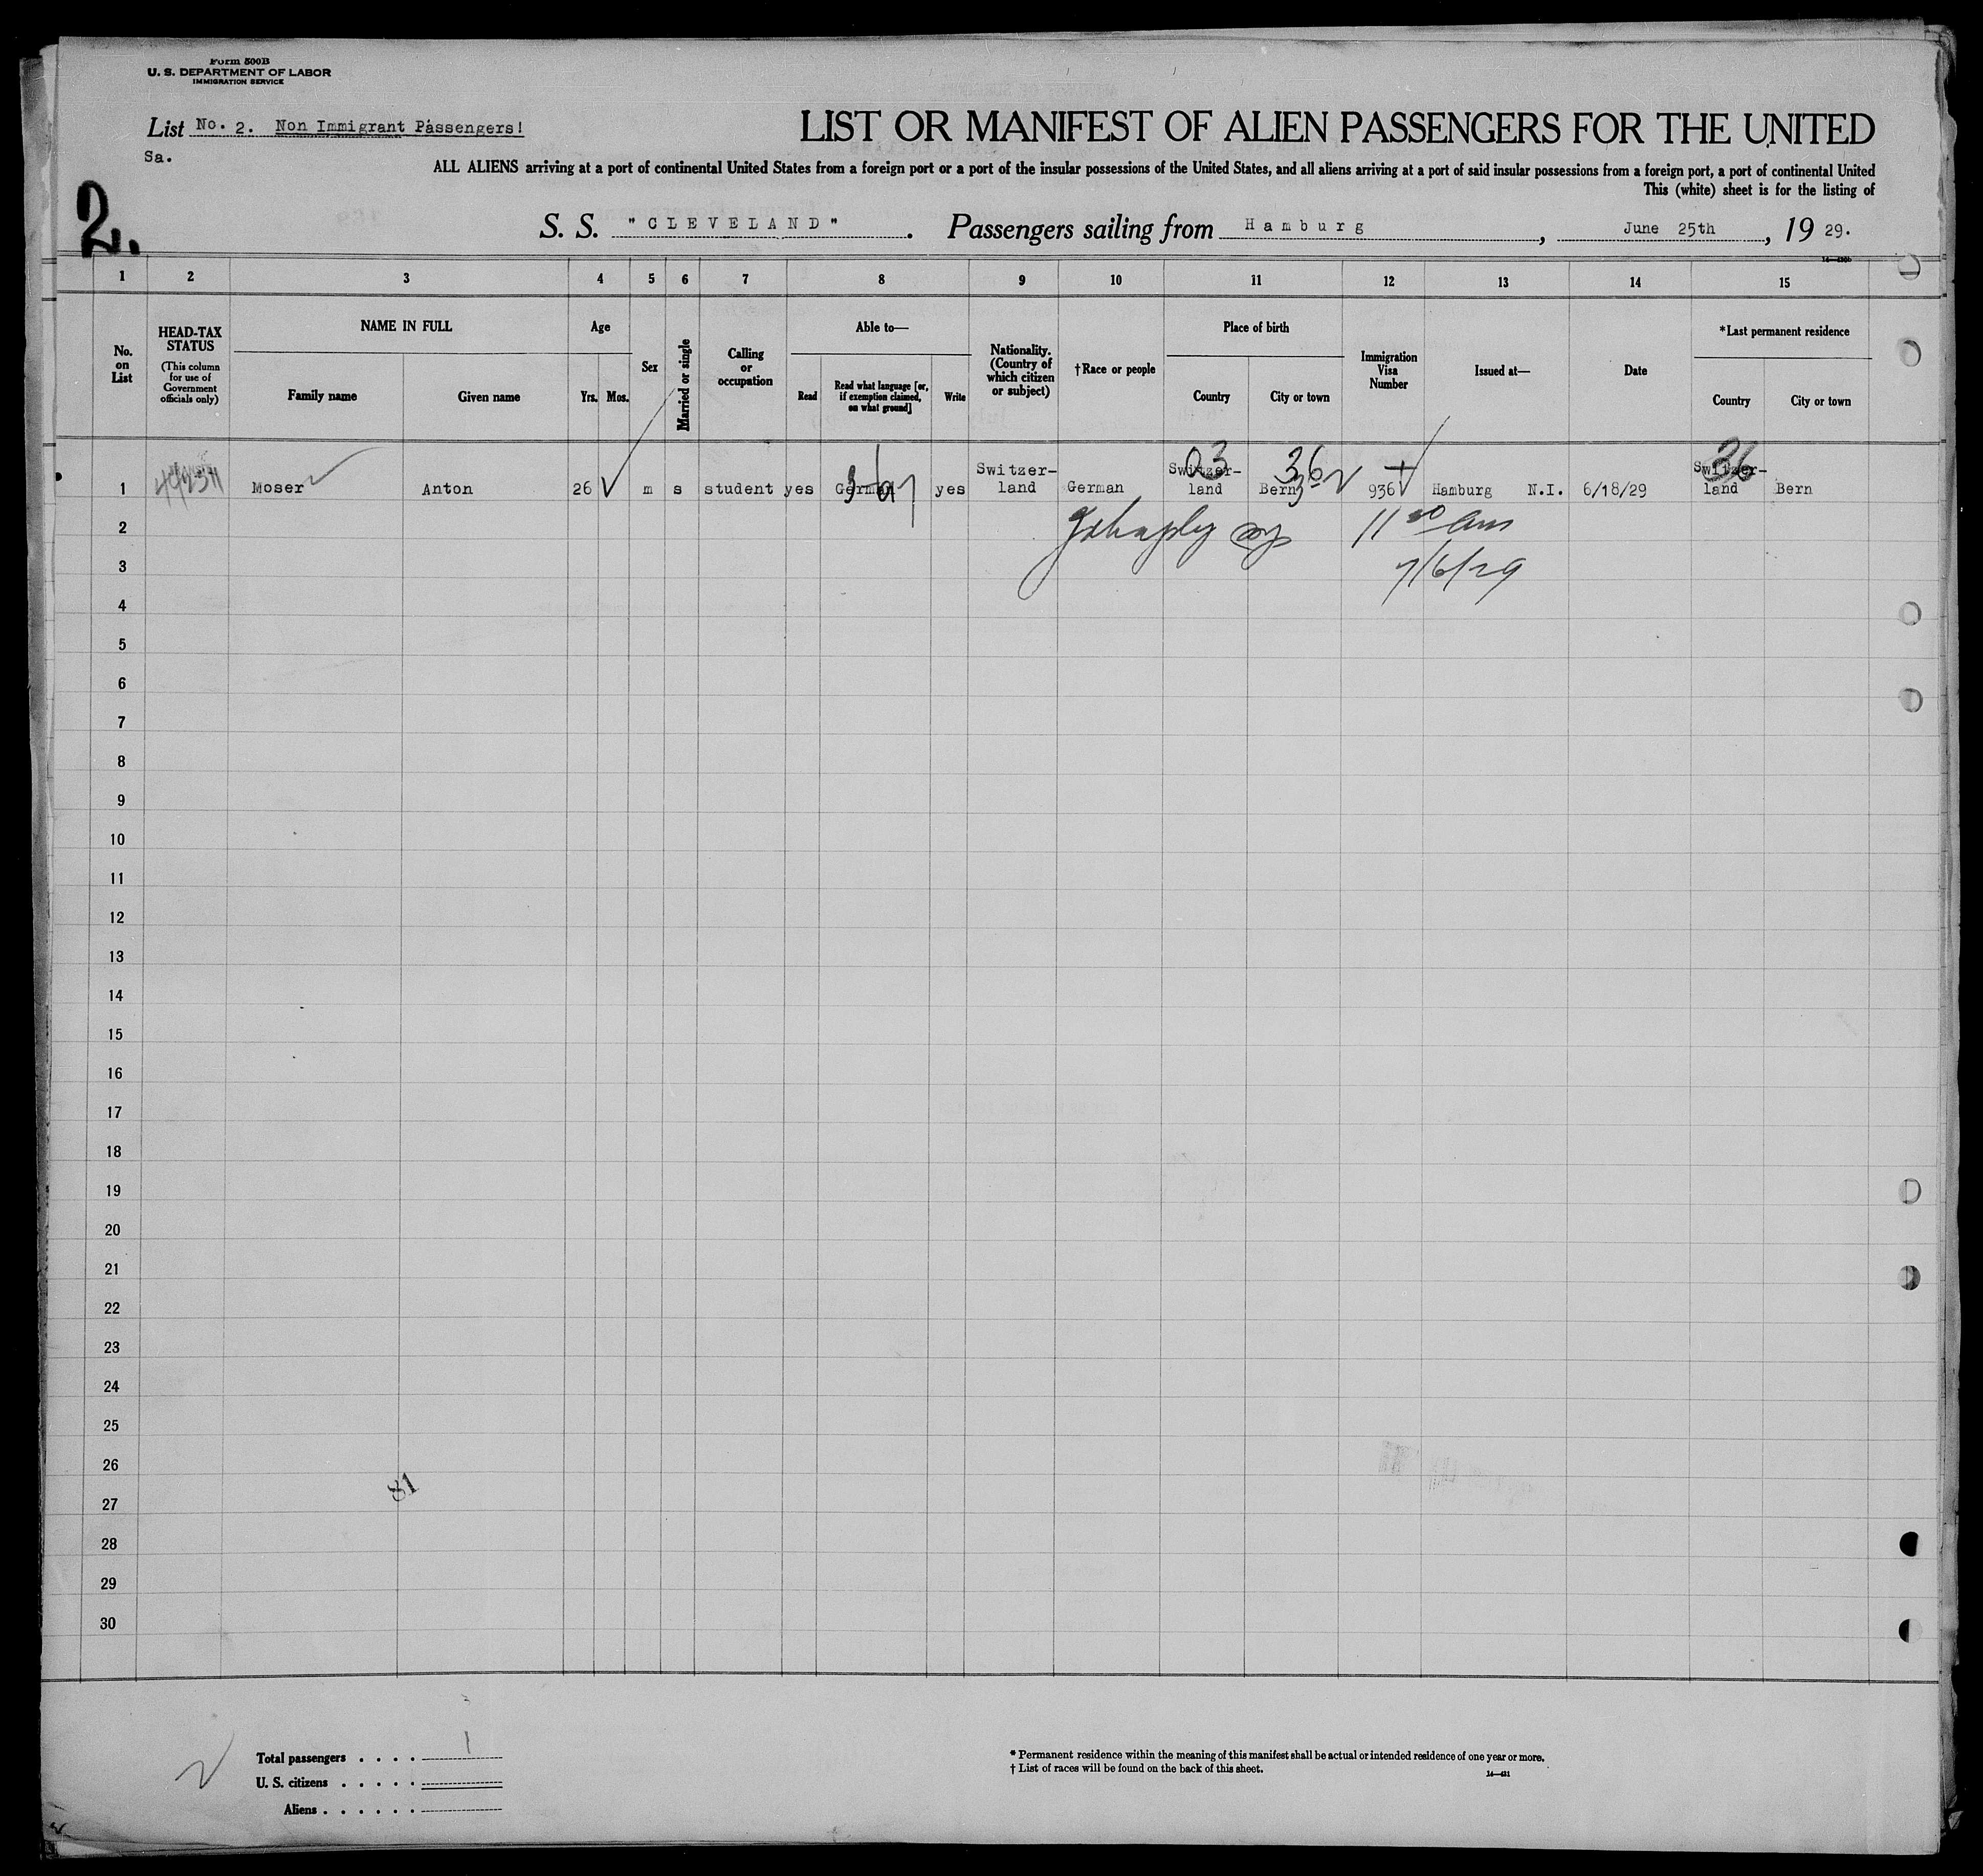 Form 500B
U. S. DEPARTMENT OF LABOR
IMMIGRATION SERVICE
List No. 2. Non Immigrant Passengers!
Sa.
LIST OR MANIFEST OF ALIEN PASSENGERS FOR THE UNITED
ALL ALIENS arriving at a port of continental United States from a foreign port or a port of the insular possessions of the United States, and all aliens arriving at a port of said insular possessions from a foreign port, a port of continental United
This (white) sheet is for the listing of
2.
S. S. "CLEVELAND". Passengers sailing from Hamburg, June 25th, 19 29.
1 2 3 4 5 6 7 8 9 10 11 12 13 14 15
No. on List
HEAD-TAX STATUS
(This column for use of Government officials only)
NAME IN FULL
Family name Given name
Age
Yrs. Mos.
Sex
Married or single
Calling or occupation
Able to—
Read
Read what language [or, if exemption claimed, on what ground]
Write
Nationality. (Country of which citizen or subject)
†Race or people
Place of birth
Country City or town
Immigration Visa Number
Issued at—
Date
*Last permanent residence
Country City or town
1 Moser Anton 26 m s student yes German yes Switzer-land German Switzer-land Bern 936 Hamburg N.I. 6/18/29 Switzer-land Bern
03 36 36
2 11 00 am
3 7/6/29
4
5
6
7
8
9
10
11
12
13
14
15
16
17
18
19
20
21
22
23
24
25
26
81
27
28
29
30
Total passengers . . . . 1
U. S. citizens . . . . .
Aliens . . . . . .
* Permanent residence within the meaning of this manifest shall be actual or intended residence of one year or more.
† List of races will be found on the back of this sheet.